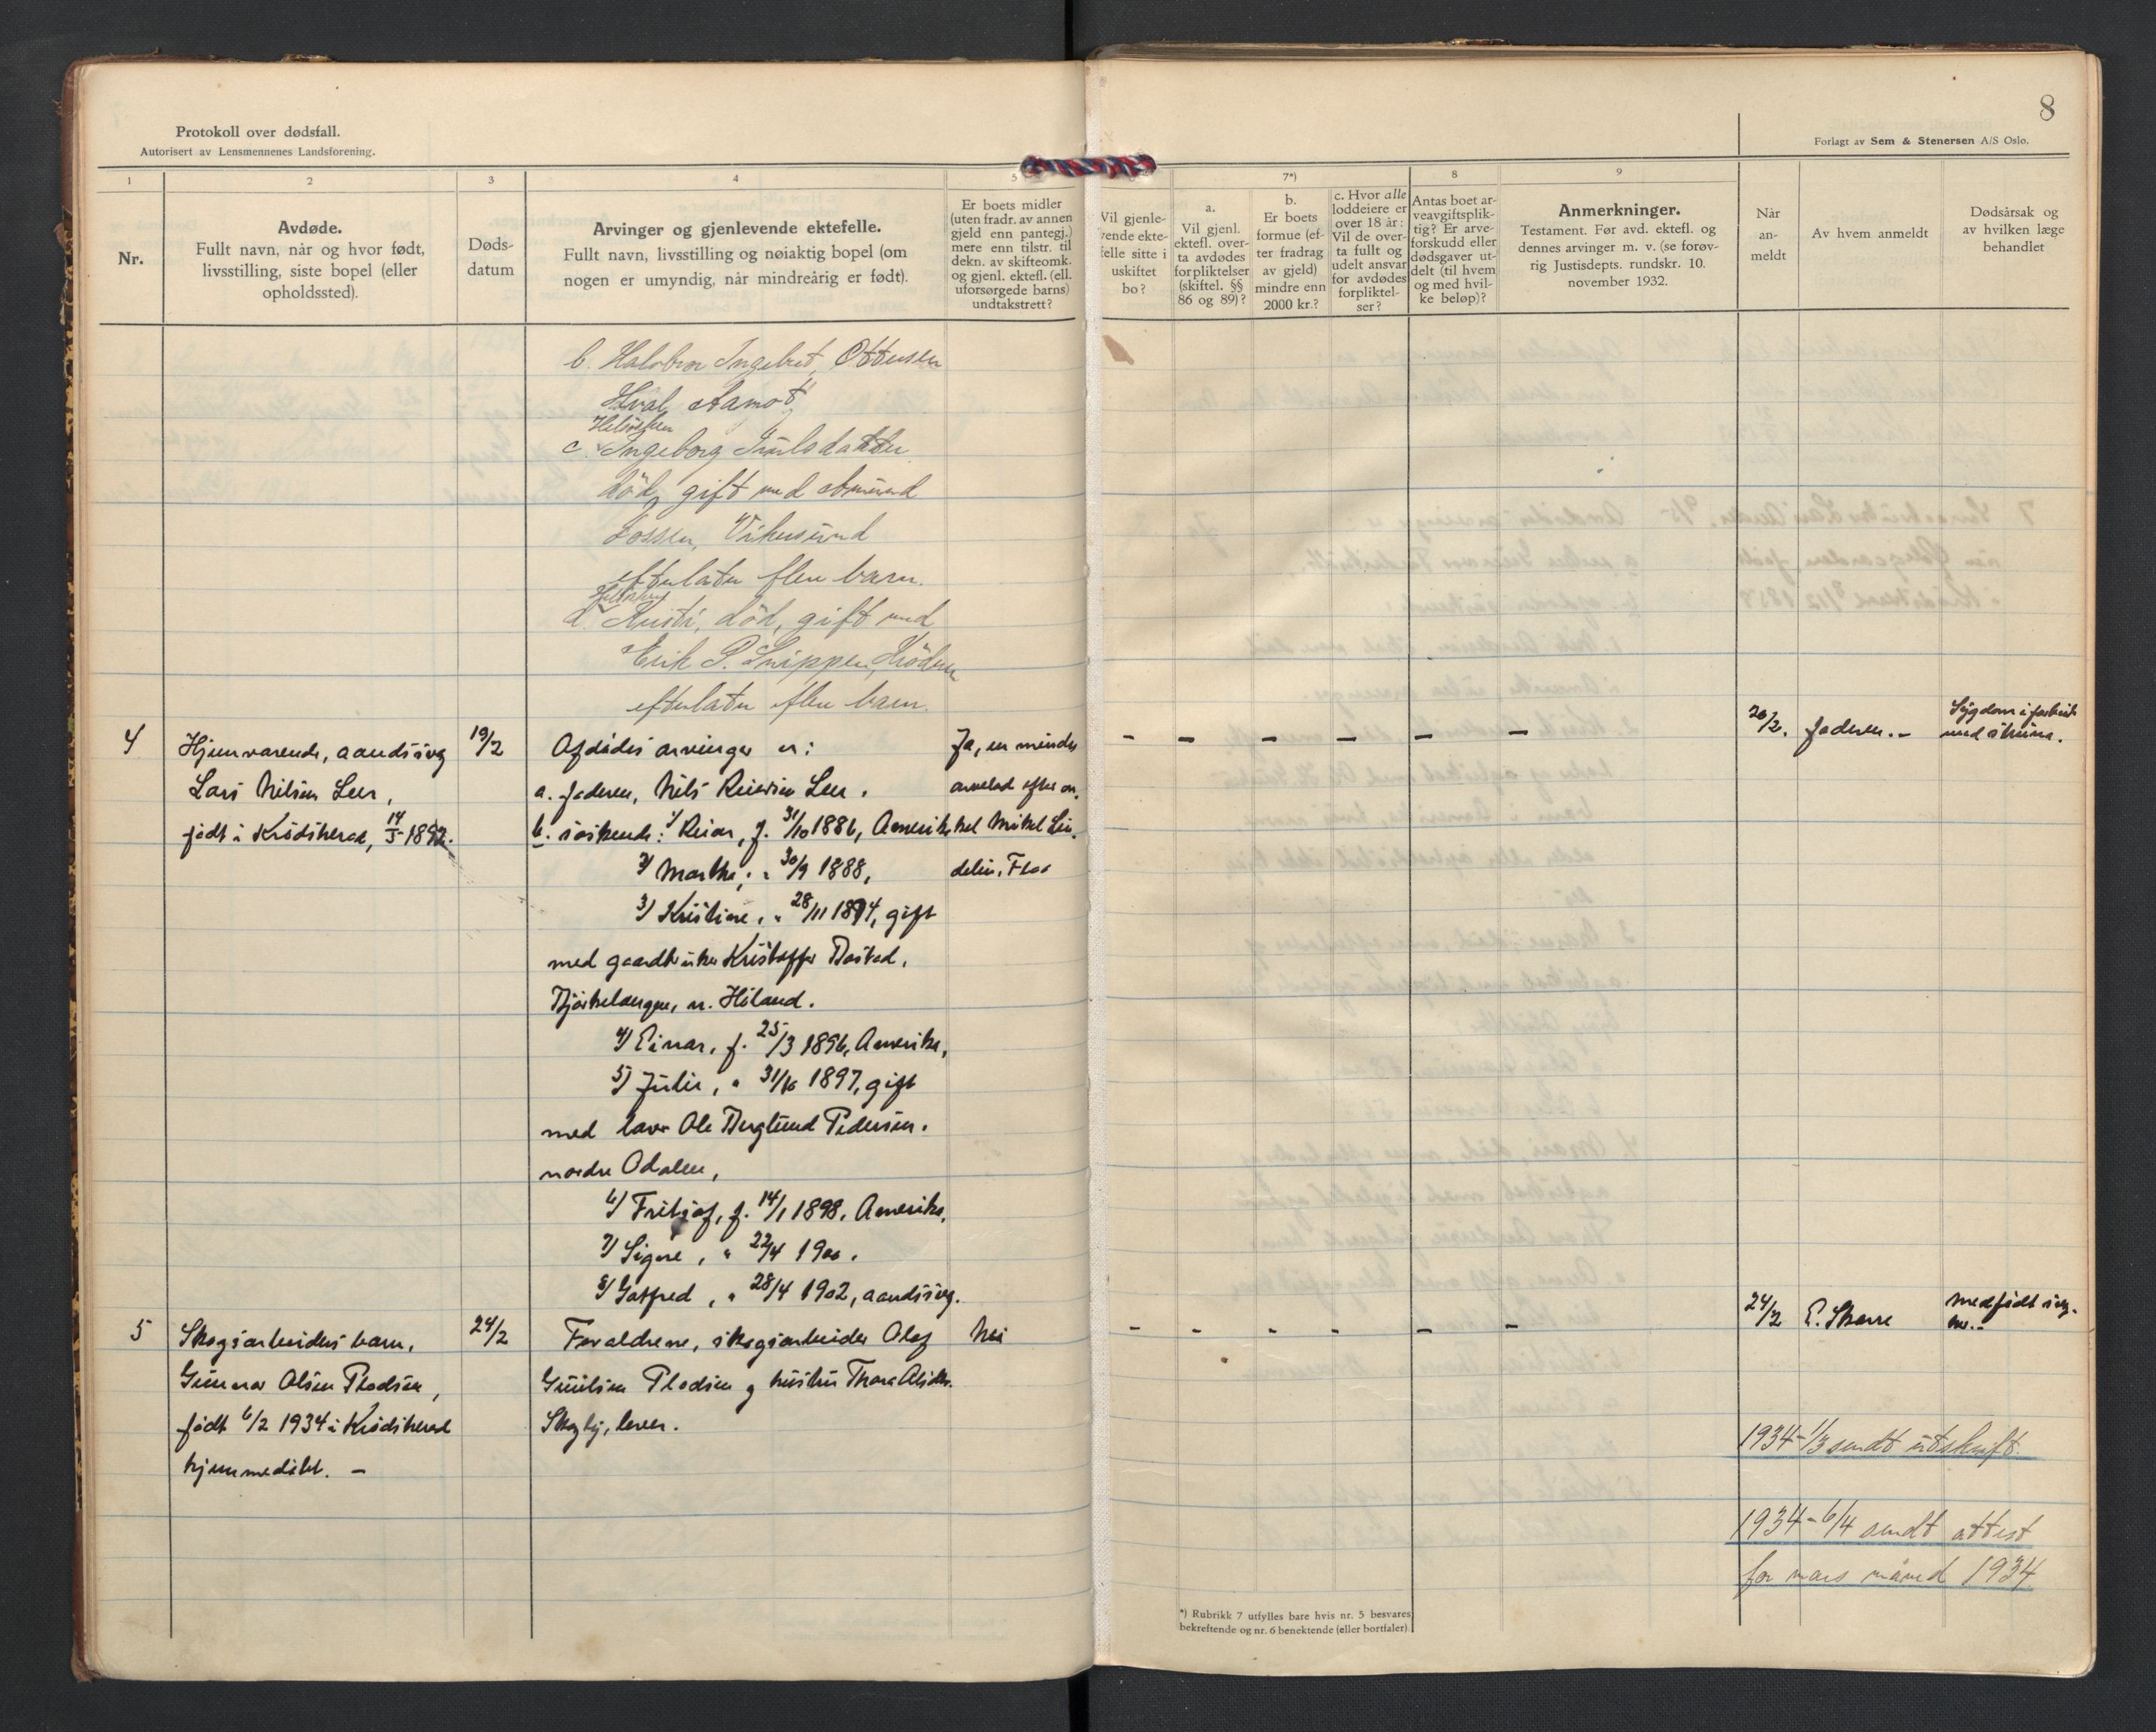 8
Protokoll over dødsfall.
Autorisert av Lensmennenes Landsforening.
Forlagt av Sem & Stenersen A/S Oslo.
1
2
3
4
5
7*)
8
9
Nr.
Avdøde.
Fullt navn, når og hvor født,
livsstilling, siste bopel (eller
opholdssted).
Døds-
datum
Arvinger og gjenlevende ektefelle.
Fullt navn, livsstilling og nøiaktig bopel (om
nogen er umyndig, når mindreårig er født).
Er boets midler
(uten fradr. av annen
gjeld enn pantegj.)
mere enn tilstr. til
dekn. av skifteomk.
og gjenl. ektefl. (ell.
uforsørgede barns)
undtakstrett?
Vil gjenle-
vende ekte-
felle sitte i
uskiftet
bo?
a.
Vil gjenl.
ektefl. over-
ta avdødes
forpliktelser
(skiftel. §§
86 og 89)?
b.
Er boets
formue (ef-
ter fradrag
av gjeld)
mindre enn
2000 kr.?
c. Hvor alle
loddeiere er
over 18 år:
Vil de over-
ta fullt og
udelt ansvar
for avdødes
forpliktel-
ser?
Antas boet ar-
veavgiftsplik-
tig? Er arve-
forskudd eller
dødsgaver ut-
delt (til hvem
og med hvil-
ke beløp)?
Anmerkninger.
Testament. Før avd. ektefl. og
dennes arvinger m. v. (se forøv-
rig Justisdepts. rundskr. 10.
november 1932.
Når
an-
meldt
Av hvem anmeldt
Dødsårsak og
av hvilken læge
behandlet
b. Halvbror Ingebret Ottesen
Hval, Aamot
c. Ingeborg Truls datter
død, gift med Amund
Fossen, Vikersund
efterlater flere barn.
d. Kristi, död, gift med
Erik P. Snippen, Kröderen
efterlater flere barn.
4
Hjemværende, aandssvag
Lars Nilsen Leer,
født i Krødsherad, 14/5 1892.
19/2
Afdødes arvinger er:
a. faderen, Nils Reiersen Leer.
b. søskende: 1/ Reier, f. 31/10 1886, Amerika
2/ Marthe, " 30/9 1888,
3/ Kristine, " 28/11 1894, gift
med gaardbruker Kristoffer Bøstad,
Bjørkelangen, n. Høland.
4/ Einar, f. 25/3 1896, Amerika,
5/ Julie, " 31/10 1897, gift
med Ole Berglund Pedersen.
nordre Odalen,
6/ Fritjof, f. 14/1 1898, Amerika,
7/ Signe, " 22/4 1900.
8/ Gotfred, " 28/4 1902, aandssvag.
Ja, en mindre
arvelod efter on-
kel Mikkel Lin-
delien, Flaa
- - - - - -
20/2. faderen.-
Sygdom i forbind.
med struma.
5
Skogsarbeiders barn,
Gunnar Olsen Plodsen,
født 6/2 1934 i Krødsherad
hjemmedøbt. -
24/2
Foraldrene, skogsarbeider Olaf
Guulsen Plodsen og hustru Thora Alfdtr.
Skagby, lever.
Nei
- - - - - -
24/2 E. Skarre
medfødt svag-
het.-
1934-1/3 sendt utskrift.
1934-6/4 sendt attest
for mars måned 1934
*) Rubrikk 7 utfylles bare hvis nr. 5 besvares
bekreftende og nr. 6 benektende (eller bortfaler)